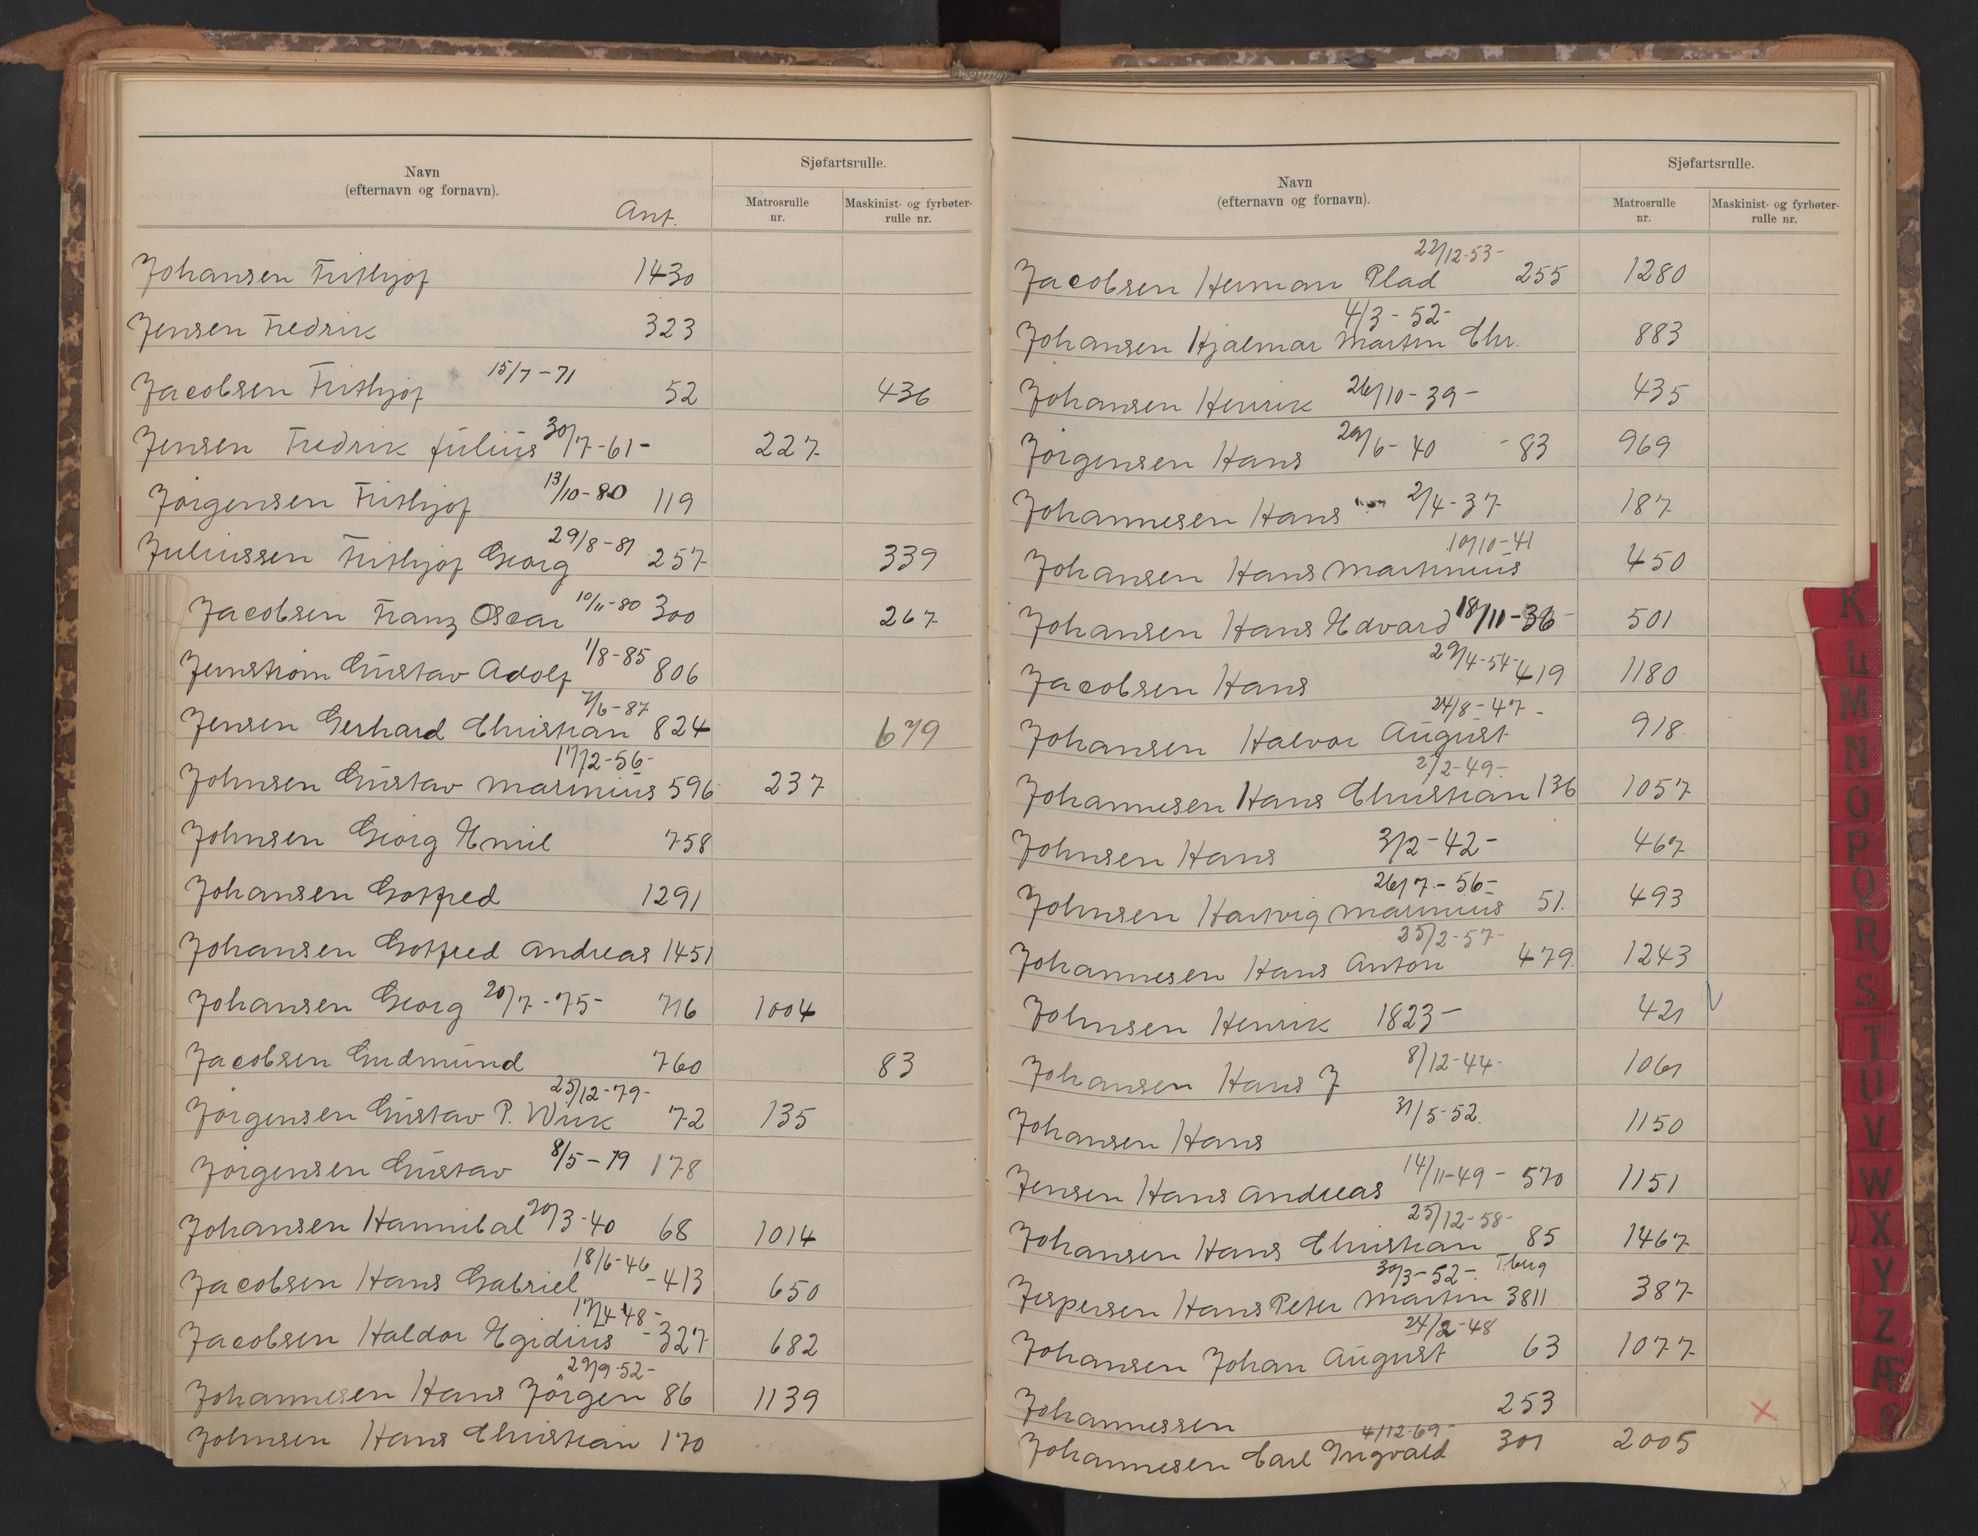 Navn
(efternavn og fornavn).
Ant.
Sjøfartsrulle.
Matrosrulle nr.
Maskinist- og fyrbøter-rulle nr.
Johansen Frithjof 1430
Jensen Fredrik 323
Jacobsen Frithjof 15/7-71 52 436
Jensen Fredrik Julius 30/7-61- 227
Jørgensen Frithjof 13/10-80 119
Juliussen Frithjof Georg 29/8-81 257 339
Jacobsen Franz Oscar 10/11-80 300 267
Jernstrøm Gustav Adolf 1/8-85 806
Jensen Gerhard Christian 7/6-87 824 679
Johnsen Gustav Marinius 17/2-56- 596 237
Johnsen Georg Emil 758
Johansen Gotfred 1291
Johansen Gotfred Andreas 1451
Johansen Georg 20/7-75- 716 1004
Jacobsen Gudmund 760 83
Jørgensen Gustav P. Wiik 25/12-79- 72 135
Jørgensen Gustav 8/5-79 178
Johansen Hannibal 20/3-40 68 1014
Jacobsen Hans Gabriel 18/6-46 -413 650
Jacobsen Haldor Egidius 17/4 48- -327 682
Johannesen Hans Jörgen 29/9-52- 86 1139
Johnsen Hans Christian 170
Navn
(efternavn og fornavn).
Sjøfartsrulle.
Matrosrulle nr.
Maskinist- og fyrbøter-rulle nr.
Jacobsen Herman Plad 22/12-53- 255 1280
Johansen Hjalmar Martin Chr. 4/3-52- 883
Johansen Henrik 26/10-39- 435
Jörgensen Hans 29/6-40 -83 969
Johannesen Hans 2/4-37 187
Johansen Hans Martinius 10/10-41 450
Johansen Hans Edvard 18/11-36- 501
Jacobsen Hans 29/4-54- 419 1180
Johansen Halvor August 24/8-47- 918
Johannesen Hans Christian 2/2-49- 136 1057
Johnsen Hans 3/2-42- 467
Johnsen Hartvig Marinius 26/7-56- 51. 493
Johannesen Hans Anton 25/2-57- 479. 1243
Johnsen Henrik 1823- 421
Johansen Hans J 8/12-44- 1061
Johansen Hans 31/5-52. 1150
Jensen Hans Andreas 14/11-49- 570 1151
Johansen Hans Christian 25/12-58- 85 1467
Jespersen Hans Peter Martin 30/3-52-. T.berg 3811 387
Johansen Johan August 24/2-48 63 1077
Johannessen 253
Johannesen Carl Ingvald 4/12-69- 301 2005
K
L
M
N
O
P
Q
R
S
T
U
V
W
X
Y
Z
Æ
Ø